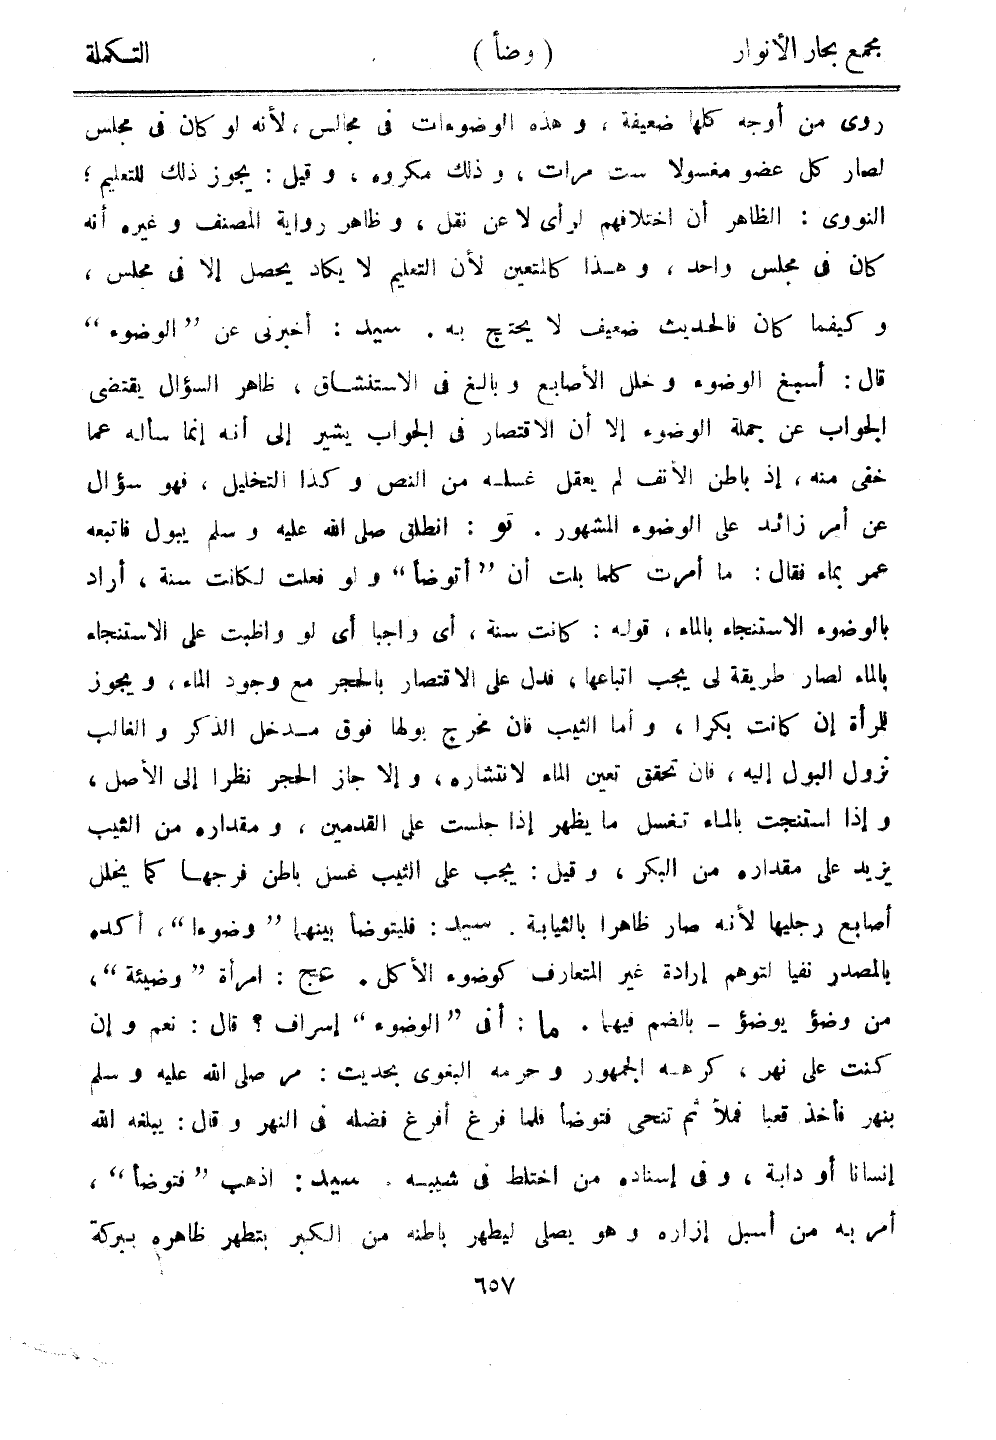 مجمع بحار الأنوار ( وضأ ) التكملة
روى من أوجه كلها ضعيفة ، و هذه الوضوءات فى مجالس ، لأنه لو كان فى مجلس
لصار كل عضو مغسولا ست مرات ، و ذلك مكروه ، و قيل : يجوز ذلك للتعليم ؛
النووى : الظاهر أن اختلافهم لرأى لا عن نقل ، و ظاهر رواية المصنف و غيره أنه
كان فى مجلس واحد ، و هذا كالمتعين لأن التعليم لا يكاد يحصل إلا فى مجلس ،
و كيفما كان فالحديث ضعيف لا يحتج به . سيد : أخبرنى عن ” الوضوء “
قال : أسبغ الوضوء و خلل الأصابع و بالغ فى الاستنشاق ، ظاهر السؤال يقتضى
الجواب عن جملة الوضوء إلا أن الاقتصار فى الجواب يشير إلى أنه إنما سأله عما
خفى منه ، إذ باطن الأنف لم يعقل غسله من النص و كذا التخليل ، فهو سؤال
عن أمر زائد على الوضوء المشهور . تو : انطلق صلى الله عليه و سلم يبول فاتبعه
عمر بماء فقال : ما أمرت كلما بلت أن ” أتوضأ “ و لو فعلت لكانت سنة ، أراد
بالوضوء الاستنجاء بالماء ، قوله : كانت سنة ، أى واجبا أى لو واظبت على الاستنجاء
بالماء لصار طريقة لى يجب اتباعها ، فدل على الاقتصار بالحجر مع وجود الماء ، و يجوز
للمرأة إن كانت بكرا ، و أما الثيب فان مخرج بولها فوق مدخل الذكر و الغالب
نزول البول إليه ، فان تحقق تعين الماء لانتشاره ، و إلا جاز الحجر نظرا إلى الأصل ،
و إذا استنجت بالماء تغسل ما يظهر إذا جلست على القدمين ، و مقداره من الثيب
يزيد على مقداره من البكر ، و قيل : يجب على الثيب غسل باطن فرجها كما يخلل
أصابع رجليها لأنه صار ظاهرا بالثيابة . سيد : فليتوضأ بينهما ” وضوءا “ ، أكده
بالمصدر نفيا لتوهم إرادة غير المتعارف كوضوء الأكل . عج : امرأة ” وضيئة “ ،
من وضؤ يوضؤ ــ بالضم فيهما . ما : أفى ” الوضوء “ إسراف ؟ قال : نعم و إن
كنت على نهر ، كرهه الجمهور و حرمه البغوى بحديث : مر صلى الله عليه و سلم
بنهر فأخذ قعبا فملأ ثم تنحى فتوضأ فلما فرغ أفرغ فضله فى النهر و قال : يبلغه الله
إنسانا أو دابة ، و فى إسناده من اختلط فى شيبه . سيد : اذهب ” فتوضأ “ ،
أمر به من أسبل إزاره و هو يصلى ليطهر باطنه من الكبر بتطهر ظاهره ببركة
٦٥٧